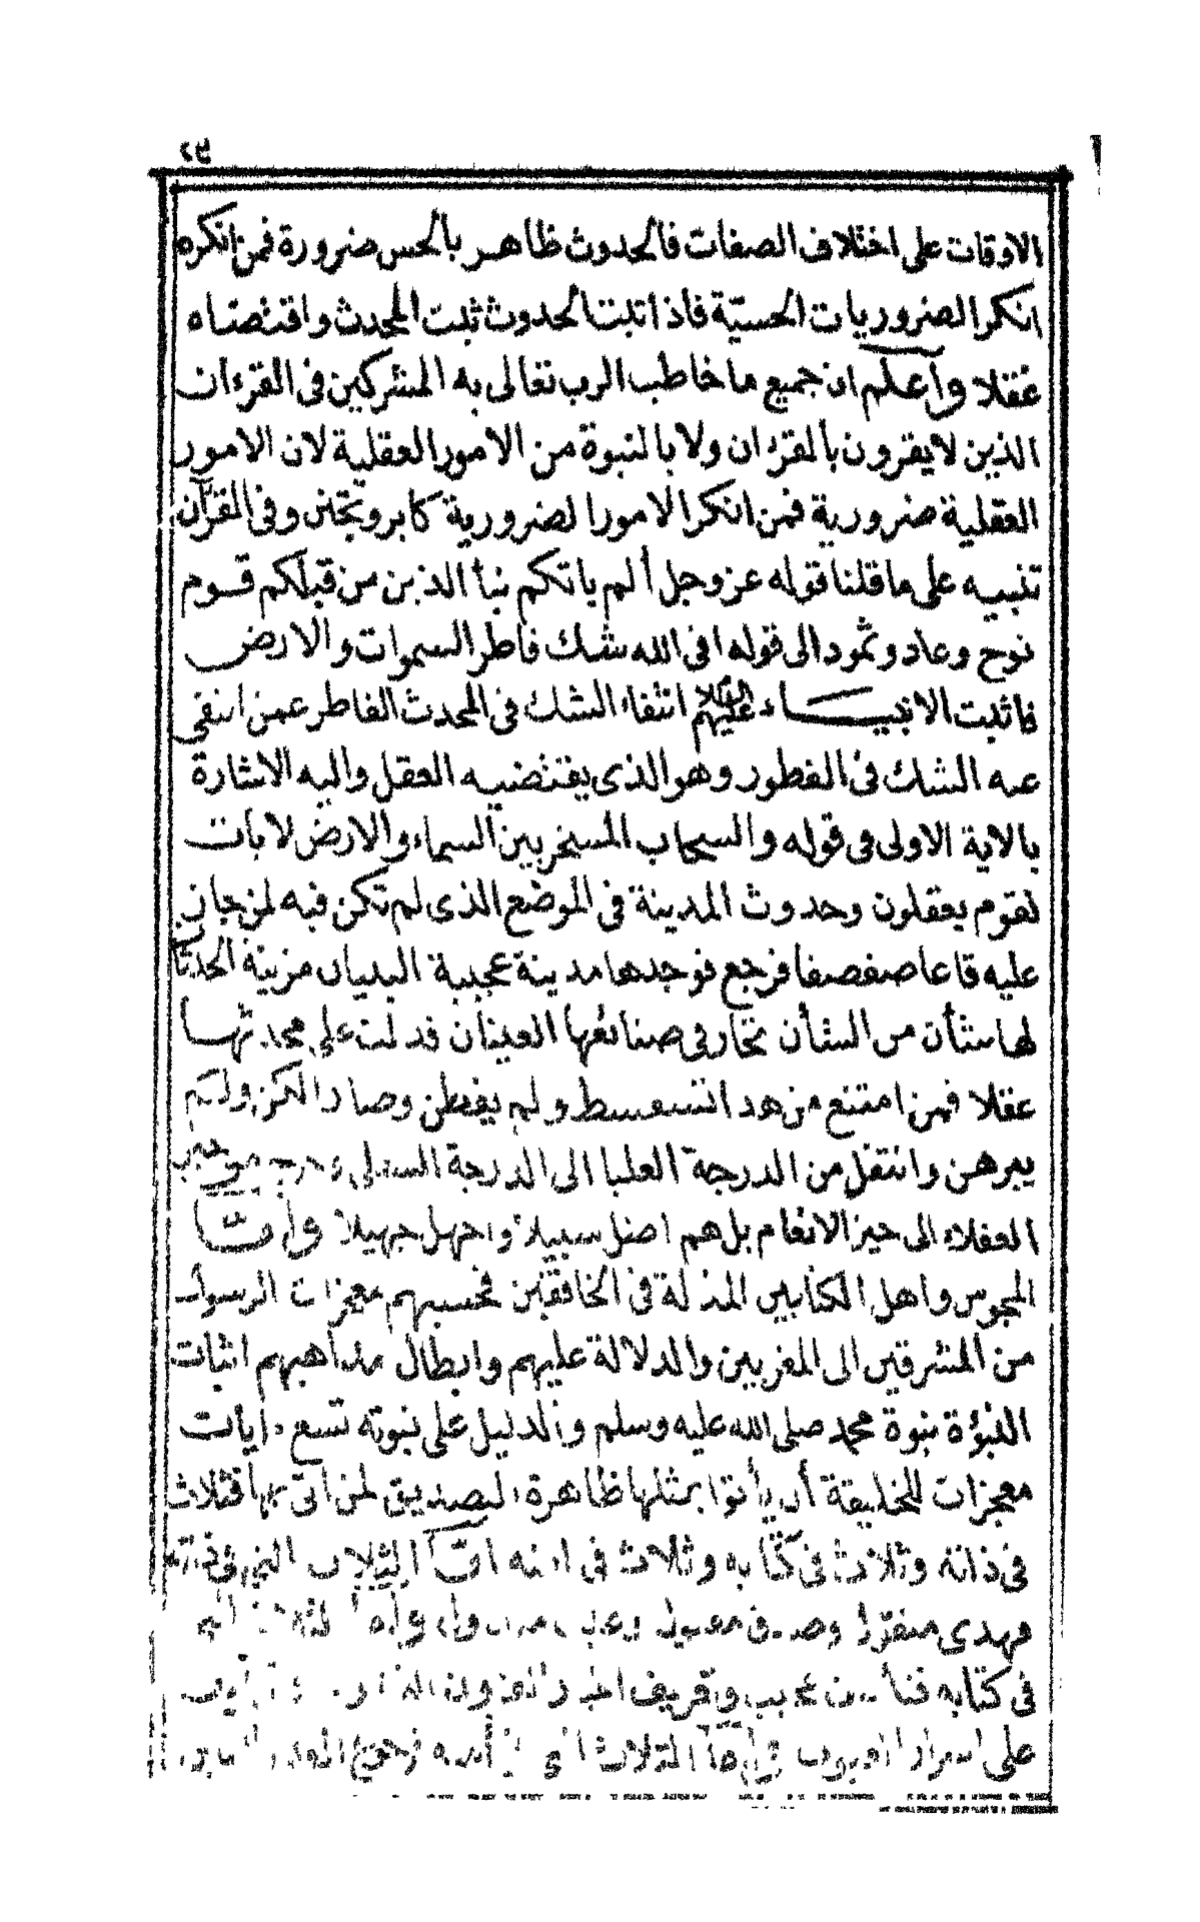 ٢٣
الاوقات على اختلاف الصفات فالحدوث ظاهر بالحس ضرورة فمن انكره
انكر الضروريات الحسيّة فاذا ثبت الحدوث ثبت المحدث واقتضاه
عقلا واعلم ان جميع ما خاطب الرب تعالى به المشركين فى القرءان
الذين لا يقرون بالقرءان ولا بالنبوة من الامور العقلية لان الامور
العقلية ضرورية فمن انكر الامور الضرورية كابر وتجنن وفى القرآن
تنبيه على ما قلنا قوله عز وجل ألم ياتكم نبأ الذين من قبلكم قوم
نوح وعاد وثمود الى قوله افى الله شك فاطر السموات والارض
فاثبت الانبياء عليهم السلام انتفاء الشك فى المحدث الفاطر عمن انتفى
عنه الشك فى الفطور وهو الذى يقتضيه العقل واليه الاشارة
بالاية الاولى فى قوله والسحاب المسخر بين السماء والارض لايات
لقوم يعقلون وحدوث المدينة فى الموضع الذى لم تكن فيه لمن جاز
عليه قاعا صفصفا فرجع فوجدها مدينة عجيبة البنيان مزينة الحدثان
لها شأن من الشأن تحار فى صنائعها العينان قد دلت على محدثها
عقلا فمن امتنع من هذا تسفسط ولم يفطن وصار الكن ولم
يبرهن وانتقل من الدرجة العليا الى الدرجة السفلى وخرج من حيز
العقلاء الى حيز الانعام بل هم اضل سبيلا واجهل جهيلا وأمّا
المجوس واهل الكتابين المذلة فى الخافقين فحسبهم معجزات الرسول
من المشرقين الى المغربين والدلالة عليهم وابطال مذاهبهم اثبات
النبوّة نبوة محمد صلى الله عليه وسلم والدليل على نبوته تسع ءايات
معجزات للخليقة أن يأتوا بمثلها ظاهرة التصديق لمن اتى بها فثلاث
فى ذاته وثلاث فى كتابه وثلاث فى امته امّا الثلاث التى فى ذاته
فهدى وصدق
فى كتابه
على اسرار الغيوب وأما الثلاث التى فى أمته